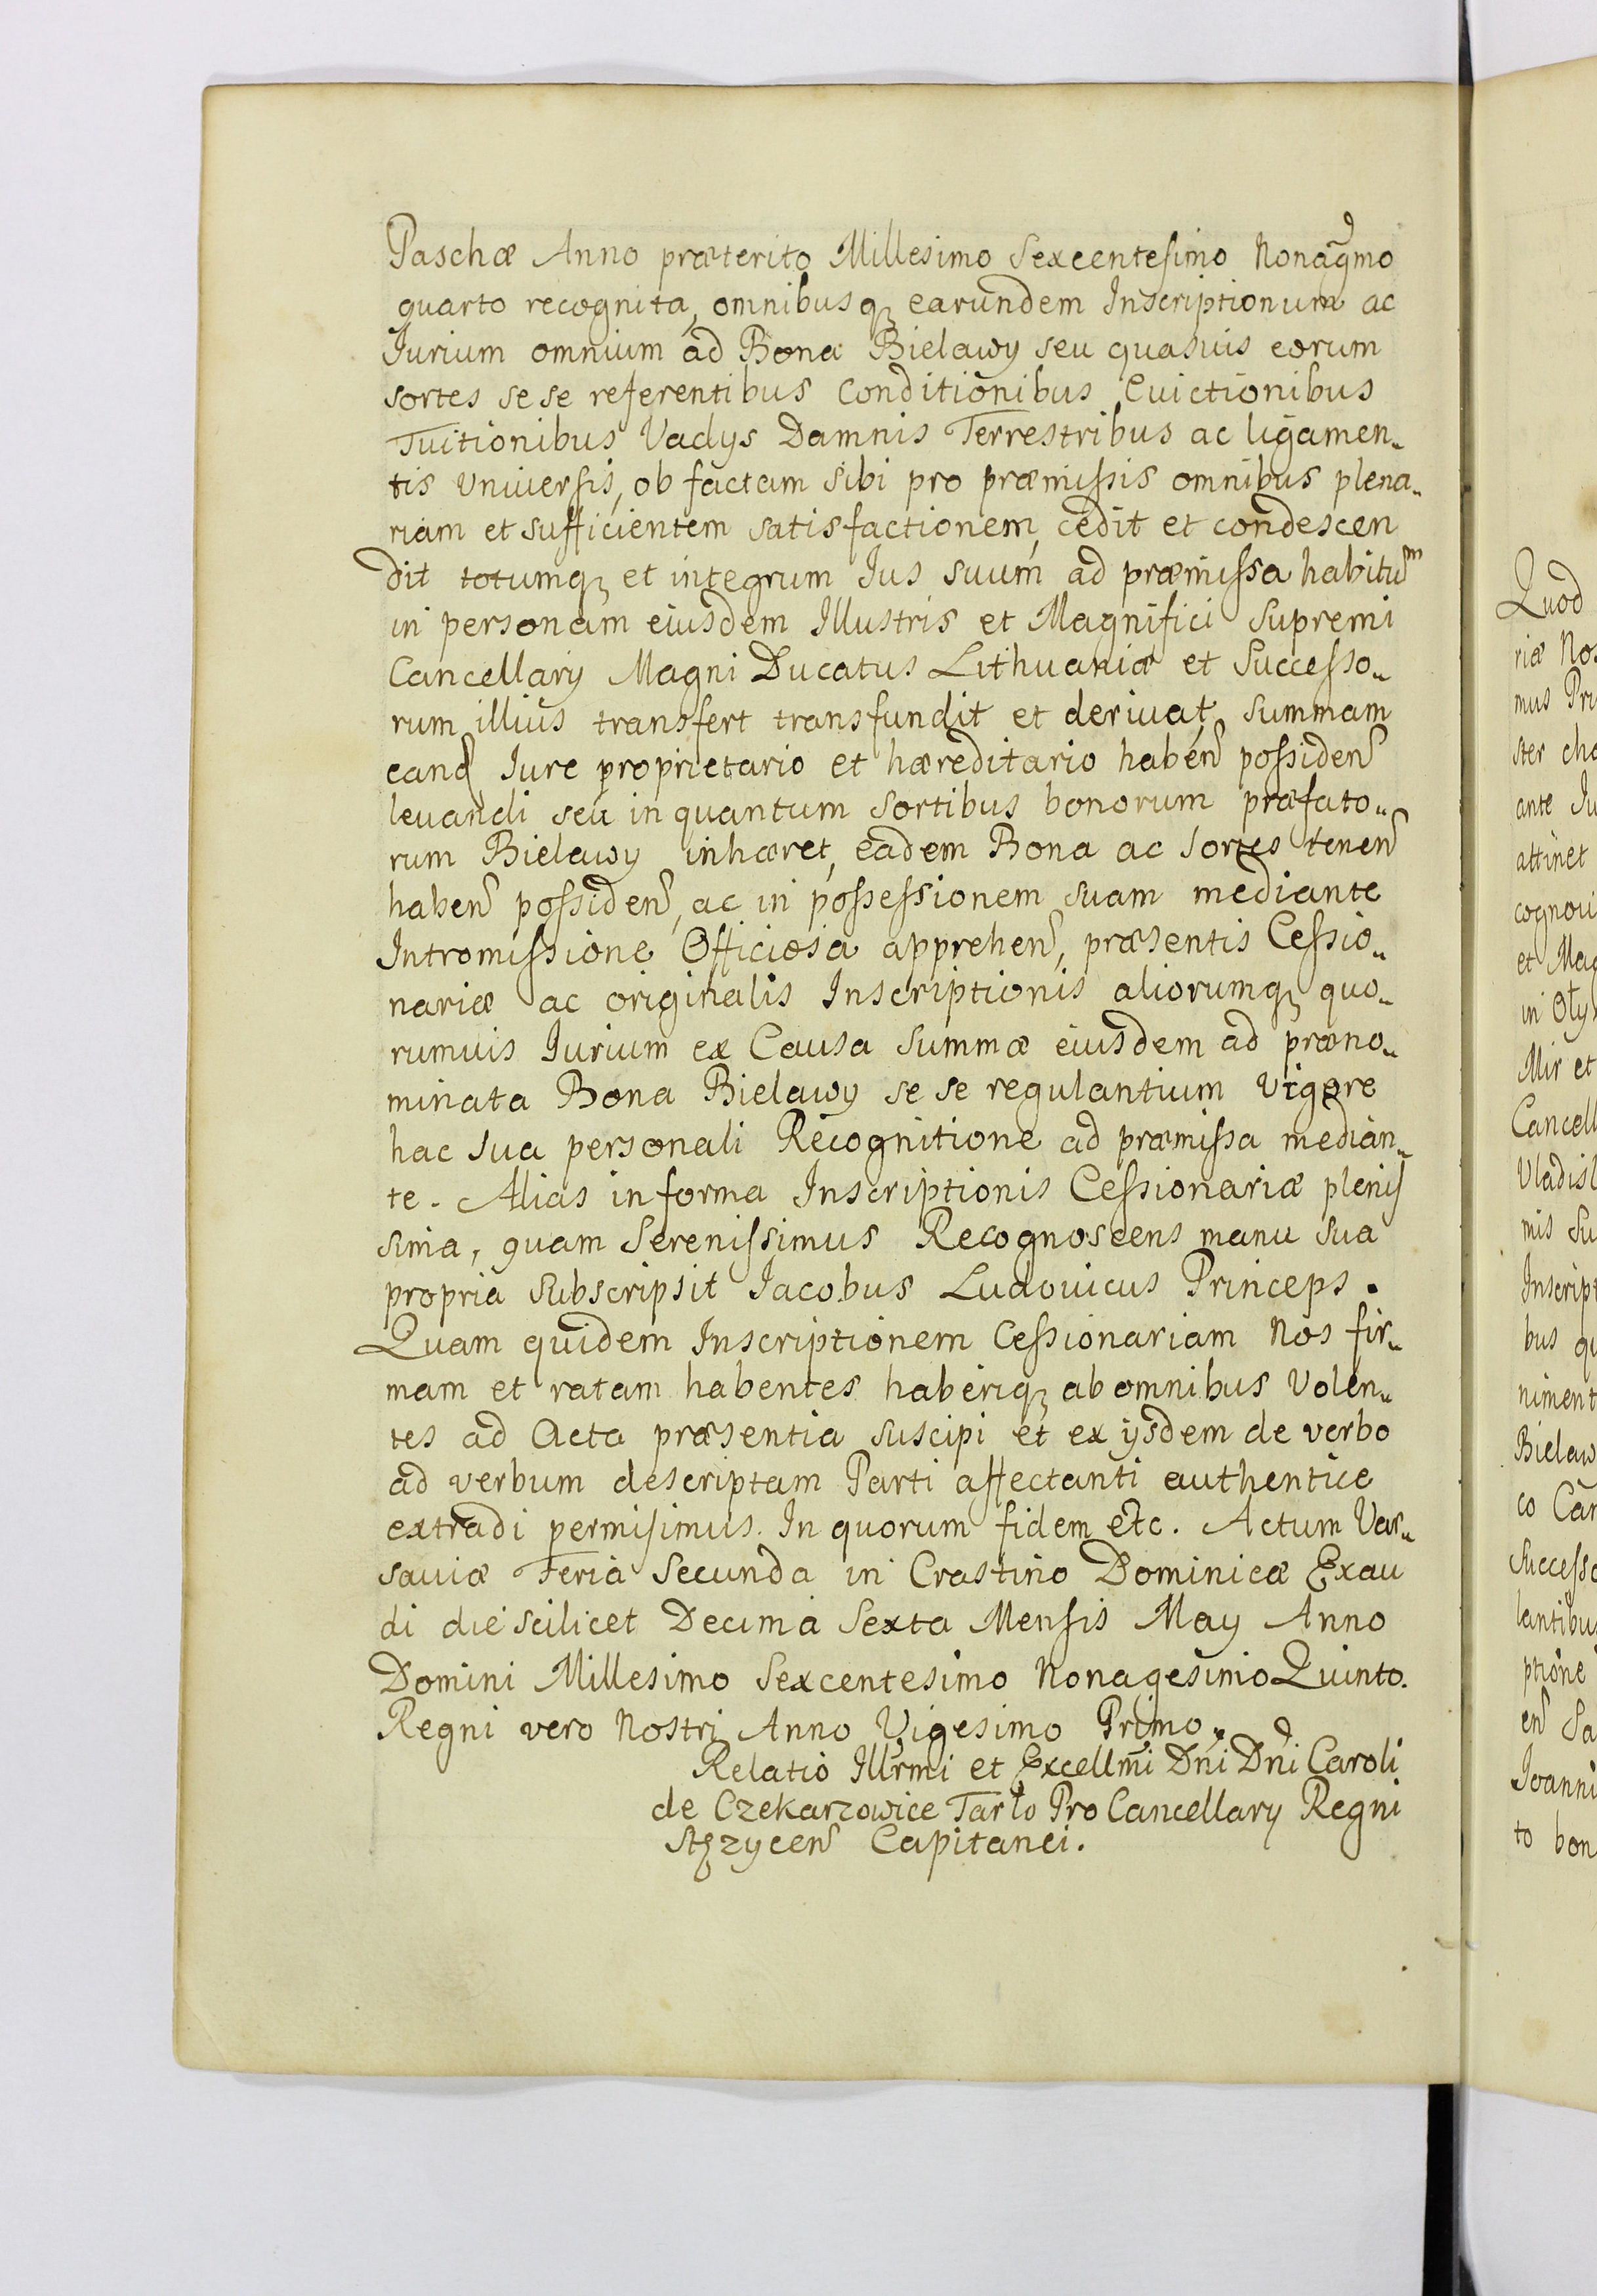 Paschæ Anno præterito Millesimo Sexcentesimo Nonagmo
quarto recognita, omnibusq earundem Inscriptionum ac
Iurium omnium ad Bona Bielawy seu quasuis eorum
sortes se se referentibus Conditionibus Euictionibus
Tuitionibus Vadys Damnis Terrestribus ac ligamen-
tis Vniuersis, ob factam sibi pro præmissis omnibus plena-
riam et sufficientem satisfactionem, cedit et condescen
dit totumq et integrum Ius suum ad præmissa habitum
in personam eiusdem Illustris et Magnifici Supremi
Cancellary Magni Ducatus Lithuaniæ et Successo-
rum illius transfert transfundit et deriuat, summam
eand Iure proprietario et hæreditario haben possiden
leuandi seu in quantum Sortibus bonorum præfato-
rum Bielawy inhæret, eadem Bona ac Sortes tenen
haben possiden, ac in possessionem suam mediante
Intromissione Officiosa apprehen, præsentis Cessio-
nariæ ac originalis Inscriptionis aliorumq quo-
rumuis Iurium ex Causa Summæ eiusdem ad præno-
minata Bona Bielawy se se regulantium vigore
hac sua personali Recognitione ad præmissa median-
te. Alias in forma Inscriptionis Cessionariæ plenis
sima, quam Serenissimus Recognoscens manu sua
propria Subscripsit Iacobus Ludouicus Princeps.
Quam quidem Inscriptionem Cessionariam Nos fir-
mam et ratam habentes haberiq ab omnibus Volen-
tes ad Acta præsentia suscipi et ex ysdem de verbo
ad verbum descriptam Parti affectanti authentice
extradi permisimus. In quorum fidem etc. Actum Var-
sauiæ Feria Secunda in Crastino Dominicæ Exau
di die scilicet Decima Sexta Mensis May Anno
Domini Millesimo Sexcentesimo Nonagesimo Quinto.
Regni vero Nostri Anno Vigesimo Primo.
Relatio Illrmi et Excellmi Dni Dni Caroli
de Czekarzowice Tarlo Pro Cancellary Regni
Stęzycen Capitanei.
Quod
riæ Nos
mus Pri
ster
ante Iu
attinet
cognoui
et Mag
in Oly
Mir et
Cancell
Vladisl
mis Su
Inscript
bus qu
niment
Bielaw
co Can
Successo
lantibus
ptione
en Sa
Ioanni
to bon